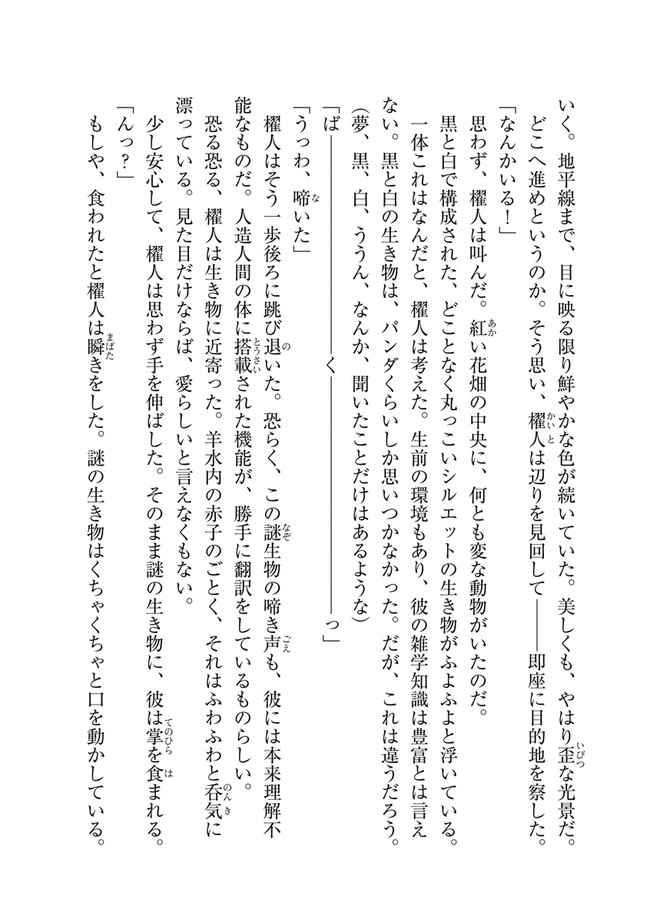 いく。地平線まで、目に映る限り鮮やかな色が続いていた。美しくも、やはり歪な光景だ。
どこへ進めというのか。そう思い、櫂人は辺りを見回して――即座に目的地を察した。
「なんかいる！」
思わず、櫂人は叫んだ。紅い花畑の中央に、何とも変な動物がいたのだ。
黒と白で構成された、どことなく丸っこいシルエットの生き物がふよふよと浮いている。
一体これはなんだと、櫂人は考えた。生前の環境もあり、彼の雑学知識は豊富とは言え
ない。黒と白の生き物は、パンダくらいしか思いつかなかった。だが、これは違うだろう。
（夢、黒、白、ううん、なんか、聞いたことだけはあるような）
「ば――――――く――――――――っ」
「うっわ、啼いた」
櫂人はそう一歩後ろに跳び退いた。恐らく、この謎生物の啼き声も、彼には本来理解不
能なものだ。人造人間の体に搭載された機能が、勝手に翻訳をしているものらしい。
恐る恐る、櫂人は生き物に近寄った。羊水内の赤子のごとく、それはふわふわと呑気に
漂っている。見た目だけならば、愛らしいと言えなくもない。
少し安心して、櫂人は思わず手を伸ばした。そのまま謎の生き物に、彼は掌を食まれる。
「んっ？」
もしや、食われたと櫂人は瞬きをした。謎の生き物はくちゃくちゃと口を動かしている。